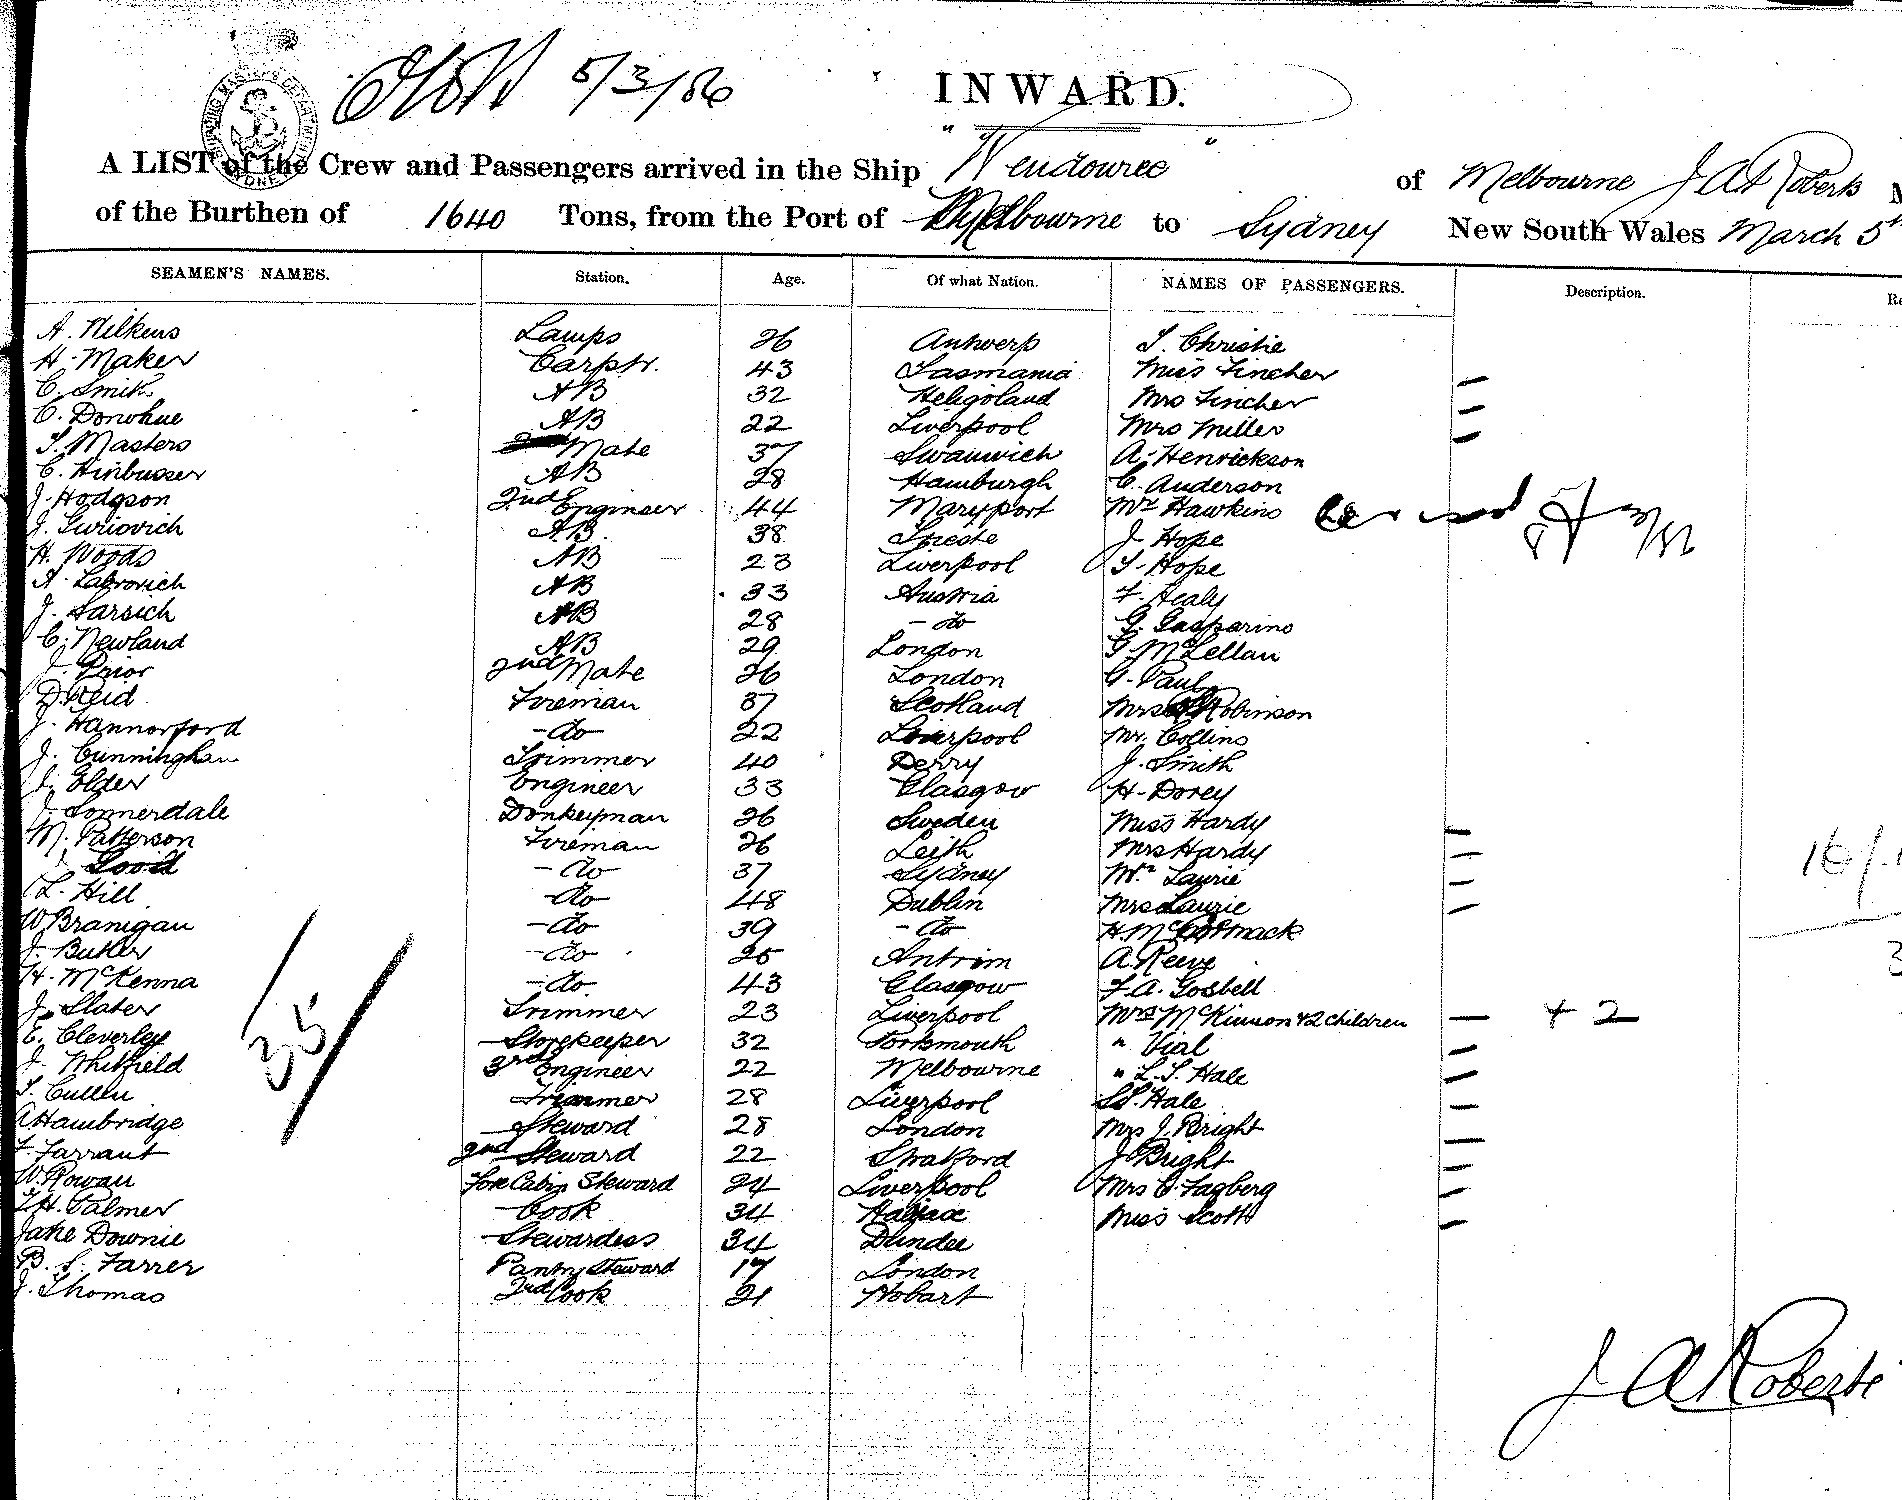 5/3/86
INWARD.
A LIST of the Crew and Passengers arrived in the Ship "Wendouree" of Melbourne J A Roberts
of the Burthen of 1640 Tons, from the Port of Melbourne to Sydney New South Wales March 5th
SEAMEN'S NAMES. Station. Age. Of what Nation. NAMES OF PASSENGERS. Description.
A. Wilkens Lamps 26 Antwerp T. Christie
H. Maker Carptr. 43 Tasmania Miss Fincher —
C. Smith AB 32 Heligoland Mrs Fincher —
C. Donohue AB 22 Liverpool Mrs Miller —
T. Masters Mate 37 Swanwich A. Henrickson
C. Hinbusser AB 28 Hamburgh C. Anderson
J. Hodgson 2nd Engineer 44 Maryport Mr Hawkins
J. AB 38 Trieste J. Hope
H. Woods AB 23 Liverpool T. Hope
A. Labrovich AB 33 Austria F. Healy
J. Sarsich AB 28 - do G. Gasparino
C. Newland AB 29 London G. McLellan
J. Prior 2nd Mate 26 London G. Paul
D. Reid Fireman 37 Scotland Mrs Robinson
J. Hannorford - do 22 Liverpool Mr. Collins
J. Cunningham Trimmer 40 Derry J. Smith
J. Elder Engineer 33 Glasgow H. Dorey
J. Sonnerdale Donkeyman 26 Sweden Miss Hardy —
M. Patterson Fireman 26 Leith Mrs Hardy —
Good - do 37 Sydney Mr Laurie —
L. Hill - do 48 Dublin Mrs Laurie —
W Branigan - do 39 - do H. McCormack
J. Butler - do 25 Antrim A. Reeve
H. McKenna - do 43 Glasgow F. A. Gosbell
J. Slater Trimmer 23 Liverpool Mrs McKinnon & 2 children — + 2
E. Cleverley Storekeeper 32 Portsmouth " Vial —
J. Whitfield 3rd Engineer 22 Melbourne " L. S. Hale —
T. Cullen Trimmer 28 Liverpool L S. Hale —
A Hambridge Steward 28 London Mrs J. Bright —
F. Farrant 2nd Steward 22 Stratford J Bright —
W. Rowan Fore Cabin Steward 24 Liverpool Mrs C. Fagberg —
T. H. Palmer Cook 34 Halifax Miss Scott —
Jane Downie Stewardess 34 Dundee
B. S. Farrer Pantry Steward 17 London
J. Thomas 2nd Cook 21 Hobart
35
J A Roberts